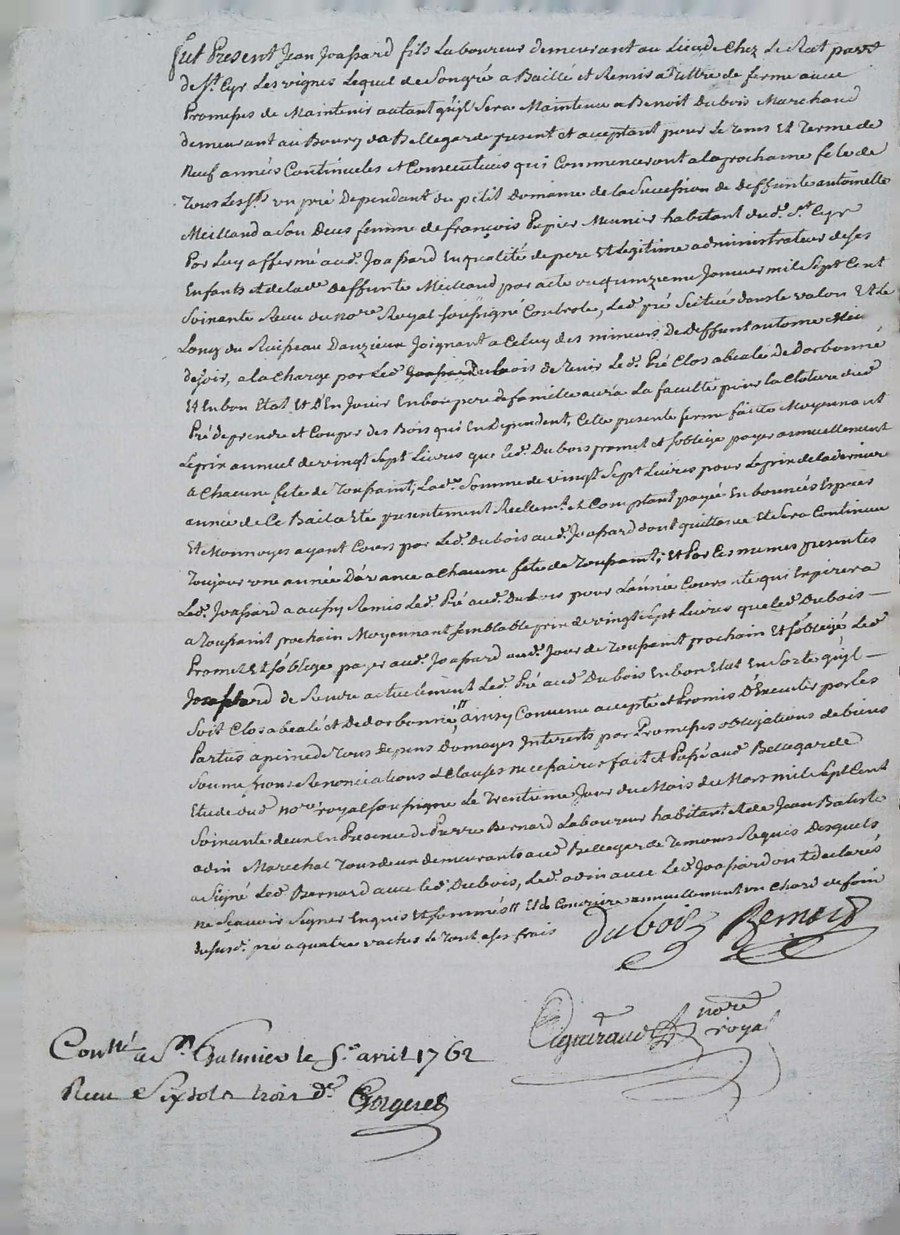 fut Present Jean Joassard fils Laboureur demeurant au Lieu de Chez Le Rat parr.
de St. Cyr Les vignes Lequel de Son gré a Baillé et Remis a tiltre de ferme avec
Promesses de Maintenir autant qu'il Sera Maintenu a Benoit Dubois Marchand
demeurant au Bourg de Bellegarde present et acceptant pour Le tems Et Terme de
Neuf années Continueles et Consecutives qui Commenceront a la prochaine fete de
Tous Les Sts. un pré Dependant du petit Domaine de la Succession de deffunte antoinette
Meilland a Son Deces femme de françois Papier Meunier habitant dud. St. Cyr
Par Luy affermé aud. Joassard En qualité de pere Et Legitime administrateur de ses
Enfants et de lad. deffunte Meilland par acte du quinzieme Janvier mil Sept Cent
Soixante Receu du nore. Royal soussigné Controle, Led. pré Scitué dans le valon Et Le
Long du Ruisseau Danzieux Joignant a Celuy des mineurs de deffunt antoine
de soir, a la Charge par Led. Dubois de tenir Led. Pré Clos abealé de dorbonné
Et En bon Etat Et D'En Jouir En bon pere de famille aura La faculté pour la Cloture dud.
Pré de prendre et Couper des Bois qui En dependent, Cette presente ferme faitte Moyennant
Le prix annuel de vingt Sept Livres que Led. Dubois promet et s'oblige payer annuellement
a Chacune fete de Toussaint, Lad. Somme de vingt Sept Livres pour Le prix de la derniere
année de Ce Bail a Eté presentement Reellemt. et Comptant payée En bonnes Especes
Et Monnoyes ayant Cours par Led. Dubois aud. Joassard dont quittance Et Sera Continué
Toujour une année D'avance a Chacune fete de Toussaint; Et Par Ces memes presentes
Led. Joassard a aussy Remis Led. Pré aud. Dubois pour L'année Courante qui Expirera
a Toussaint prochain Moyennant semblable prix de vingt Sept Livres que Led. Dubois —
Promet Et s'oblige payer aud. Joassard aud. Jour de Toussaint prochain Et s'oblige Led.
Joassard de Rendre actuelement Led. Pré aud. Dubois En bon Etat En Sorte qu'yl —
Soit Clos abealé et de dorbonné, ainsy Convenu accepté et Promis D'Executer par les
Parties a peine de Tous depens Domages Interets par Promesses obligations de biens
Soumissions Renonciations et Clauses necessaires fait et Passé aud. Bellegarde
Etude dud. nore. royal soussigne Le Trentieme Jour du Mois de Mars mil Sept Cent
Soixante deux En Presence de Pierre Bernard Laboureur habitant et de Jean Batiste
adin Marechal Tous deux demeurants aud. Bellegarde Temoins Requis Desquels
a Signé Led. Bernard avec led. Dubois, Led. adin avec Led. Joassard ont declarés
ne Scavoir Signer Enquis Et sommés // Et de Conduire annuellement un Chard de foin
du susd. pré a quatre vaches Le Tout a ses frais
dubois Bernard
nore. royal
Conllé a St. Galmier le 5e. avril 1762
Receu Six sols trois d.